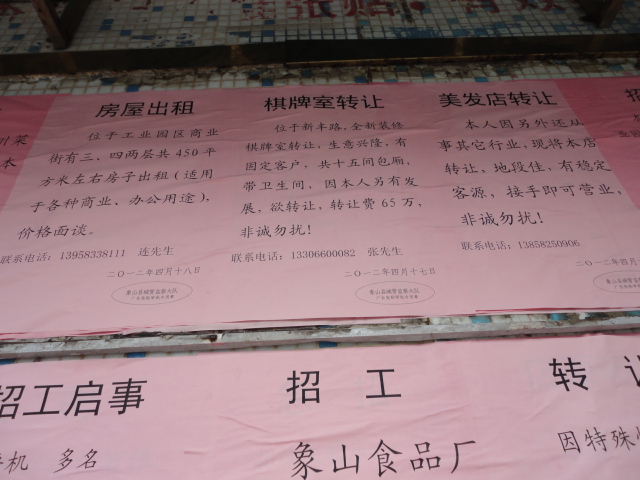 房屋出租
位于工业园区商业
街有三、四两层共450平
方米左右房子出租（适用
于各种商业、办公用途），
价格面谈。
联系电话：13958338111 连先生
二〇一二年四月十八日
象山县城管监察大队
棋牌室转让
位于新丰路，全新装修
棋牌室转让，生意兴隆，有
固定客户，共十五间包厢，
带卫生间，因本人另有发
展，欲转让，转让费65万，
非诚勿扰！
联系电话：13306600082 张先生
二〇一二年四月十七日
象山县城管监察大队
美发店转让
本人因另外还从
事其它行业，现将本店
转让，地段佳，有稳定
客源，接手即可营业，
非诚勿扰！
联系电话：13858250906
二〇一二年四月
象山县城管监察大队
招
菜
本
招工启事
多名
招 工
象山食品厂
转 让
因特殊